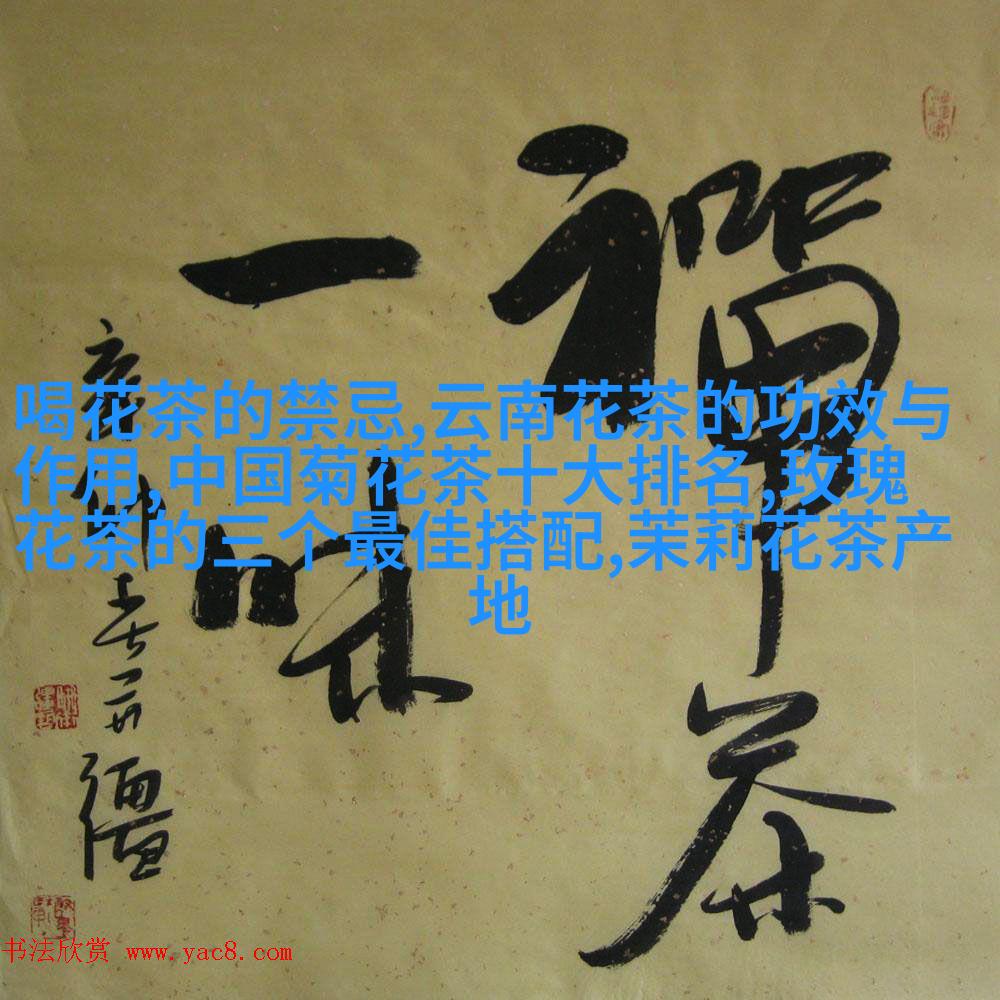 禅茶
一味
喝花茶的禁忌,云南花茶的功效与
作用,中国菊花茶十大排名,玫瑰
花茶的三个最佳搭配,茉莉花茶产
地
书法欣赏 www.yac8.com